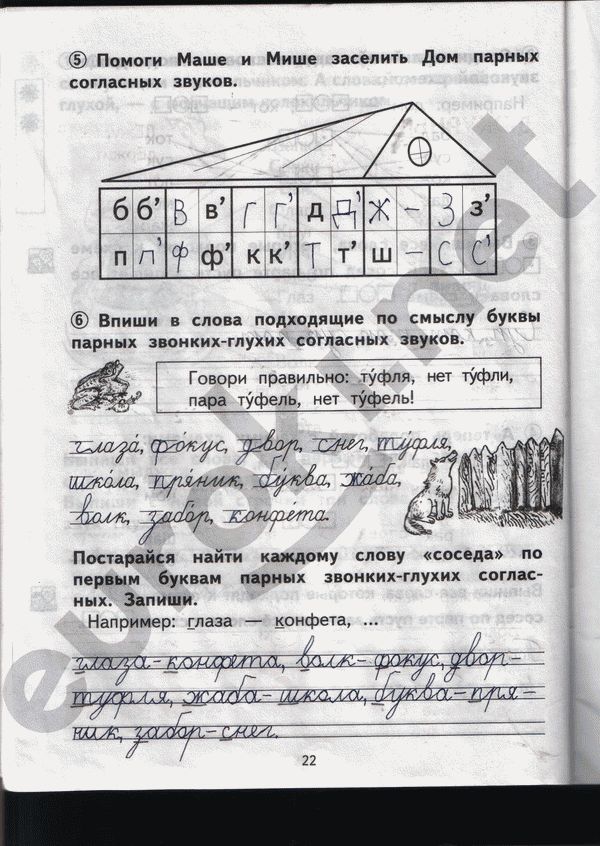 ⑤ Помоги Маше и Мише заселить Дом парных
согласных звуков.
б б’ В в’ Г Г’ д Д’ Ж – З з’
п п’ ф ф’ к к’ Т т’ ш – С С’
⑥ Впиши в слова подходящие по смыслу буквы
парных звонких-глухих согласных звуков.
Говори правильно: ту́фля, нет ту́фли,
пара ту́фель, нет ту́фель!
глаза́, фо́кус, двор, снег, ту́фля,
шко́ла, пря́ник, бу́ква, жа́ба,
волк, забо́р, конфе́та.
Постарайся найти каждому слову «соседа» по
первым буквам парных звонких-глухих соглас-
ных. Запиши.
Например: глаза — конфета, ...
глаза – конфета, волк – фокус, двор –
туфля, жаба – школа, буква – пря-
ник, забор – снег.
22
euroki.net